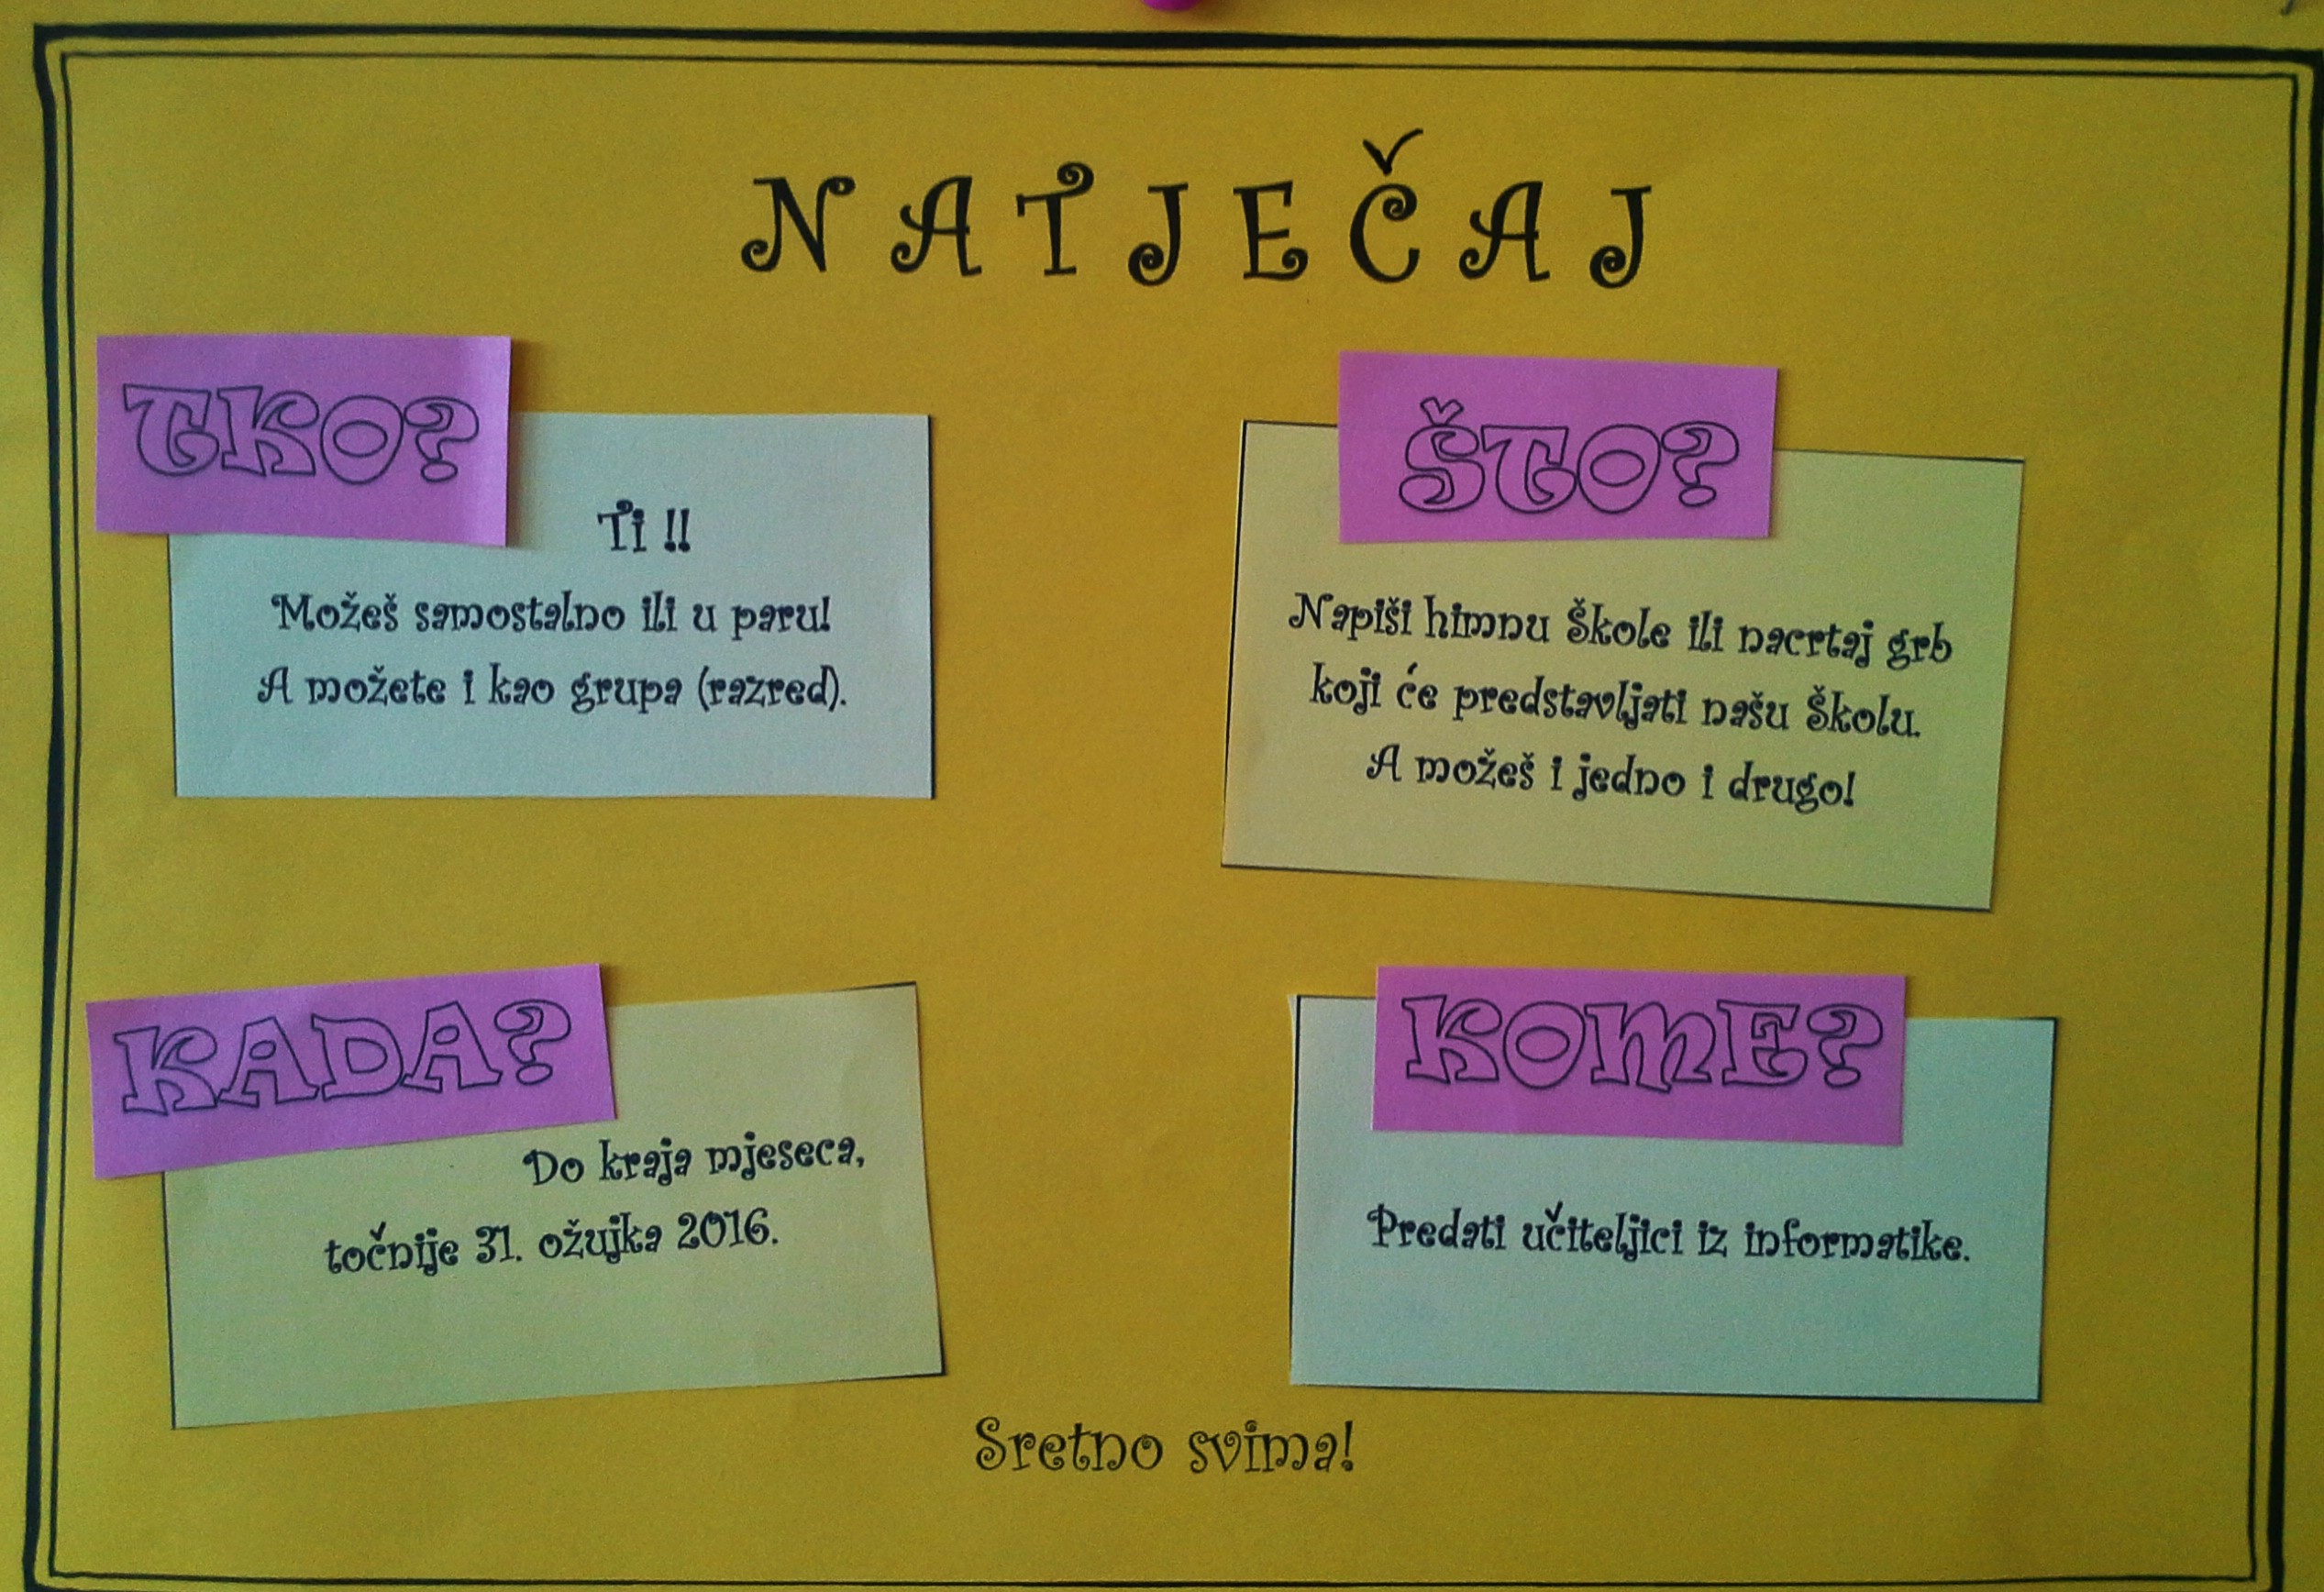 NATJEČAJ
TKO?
Ti !!
Možeš samostalno ili u paru!
A možete i kao grupa (razred).
ŠTO?
Napiši himnu Škole ili nacrtaj grb
koji će predstavljati našu Školu.
A možeš i jedno i drugo!
KADA?
Do kraja mjeseca,
točnije 31. ožujka 2016.
KOME?
Predati učiteljici iz informatike.
Sretno svima!